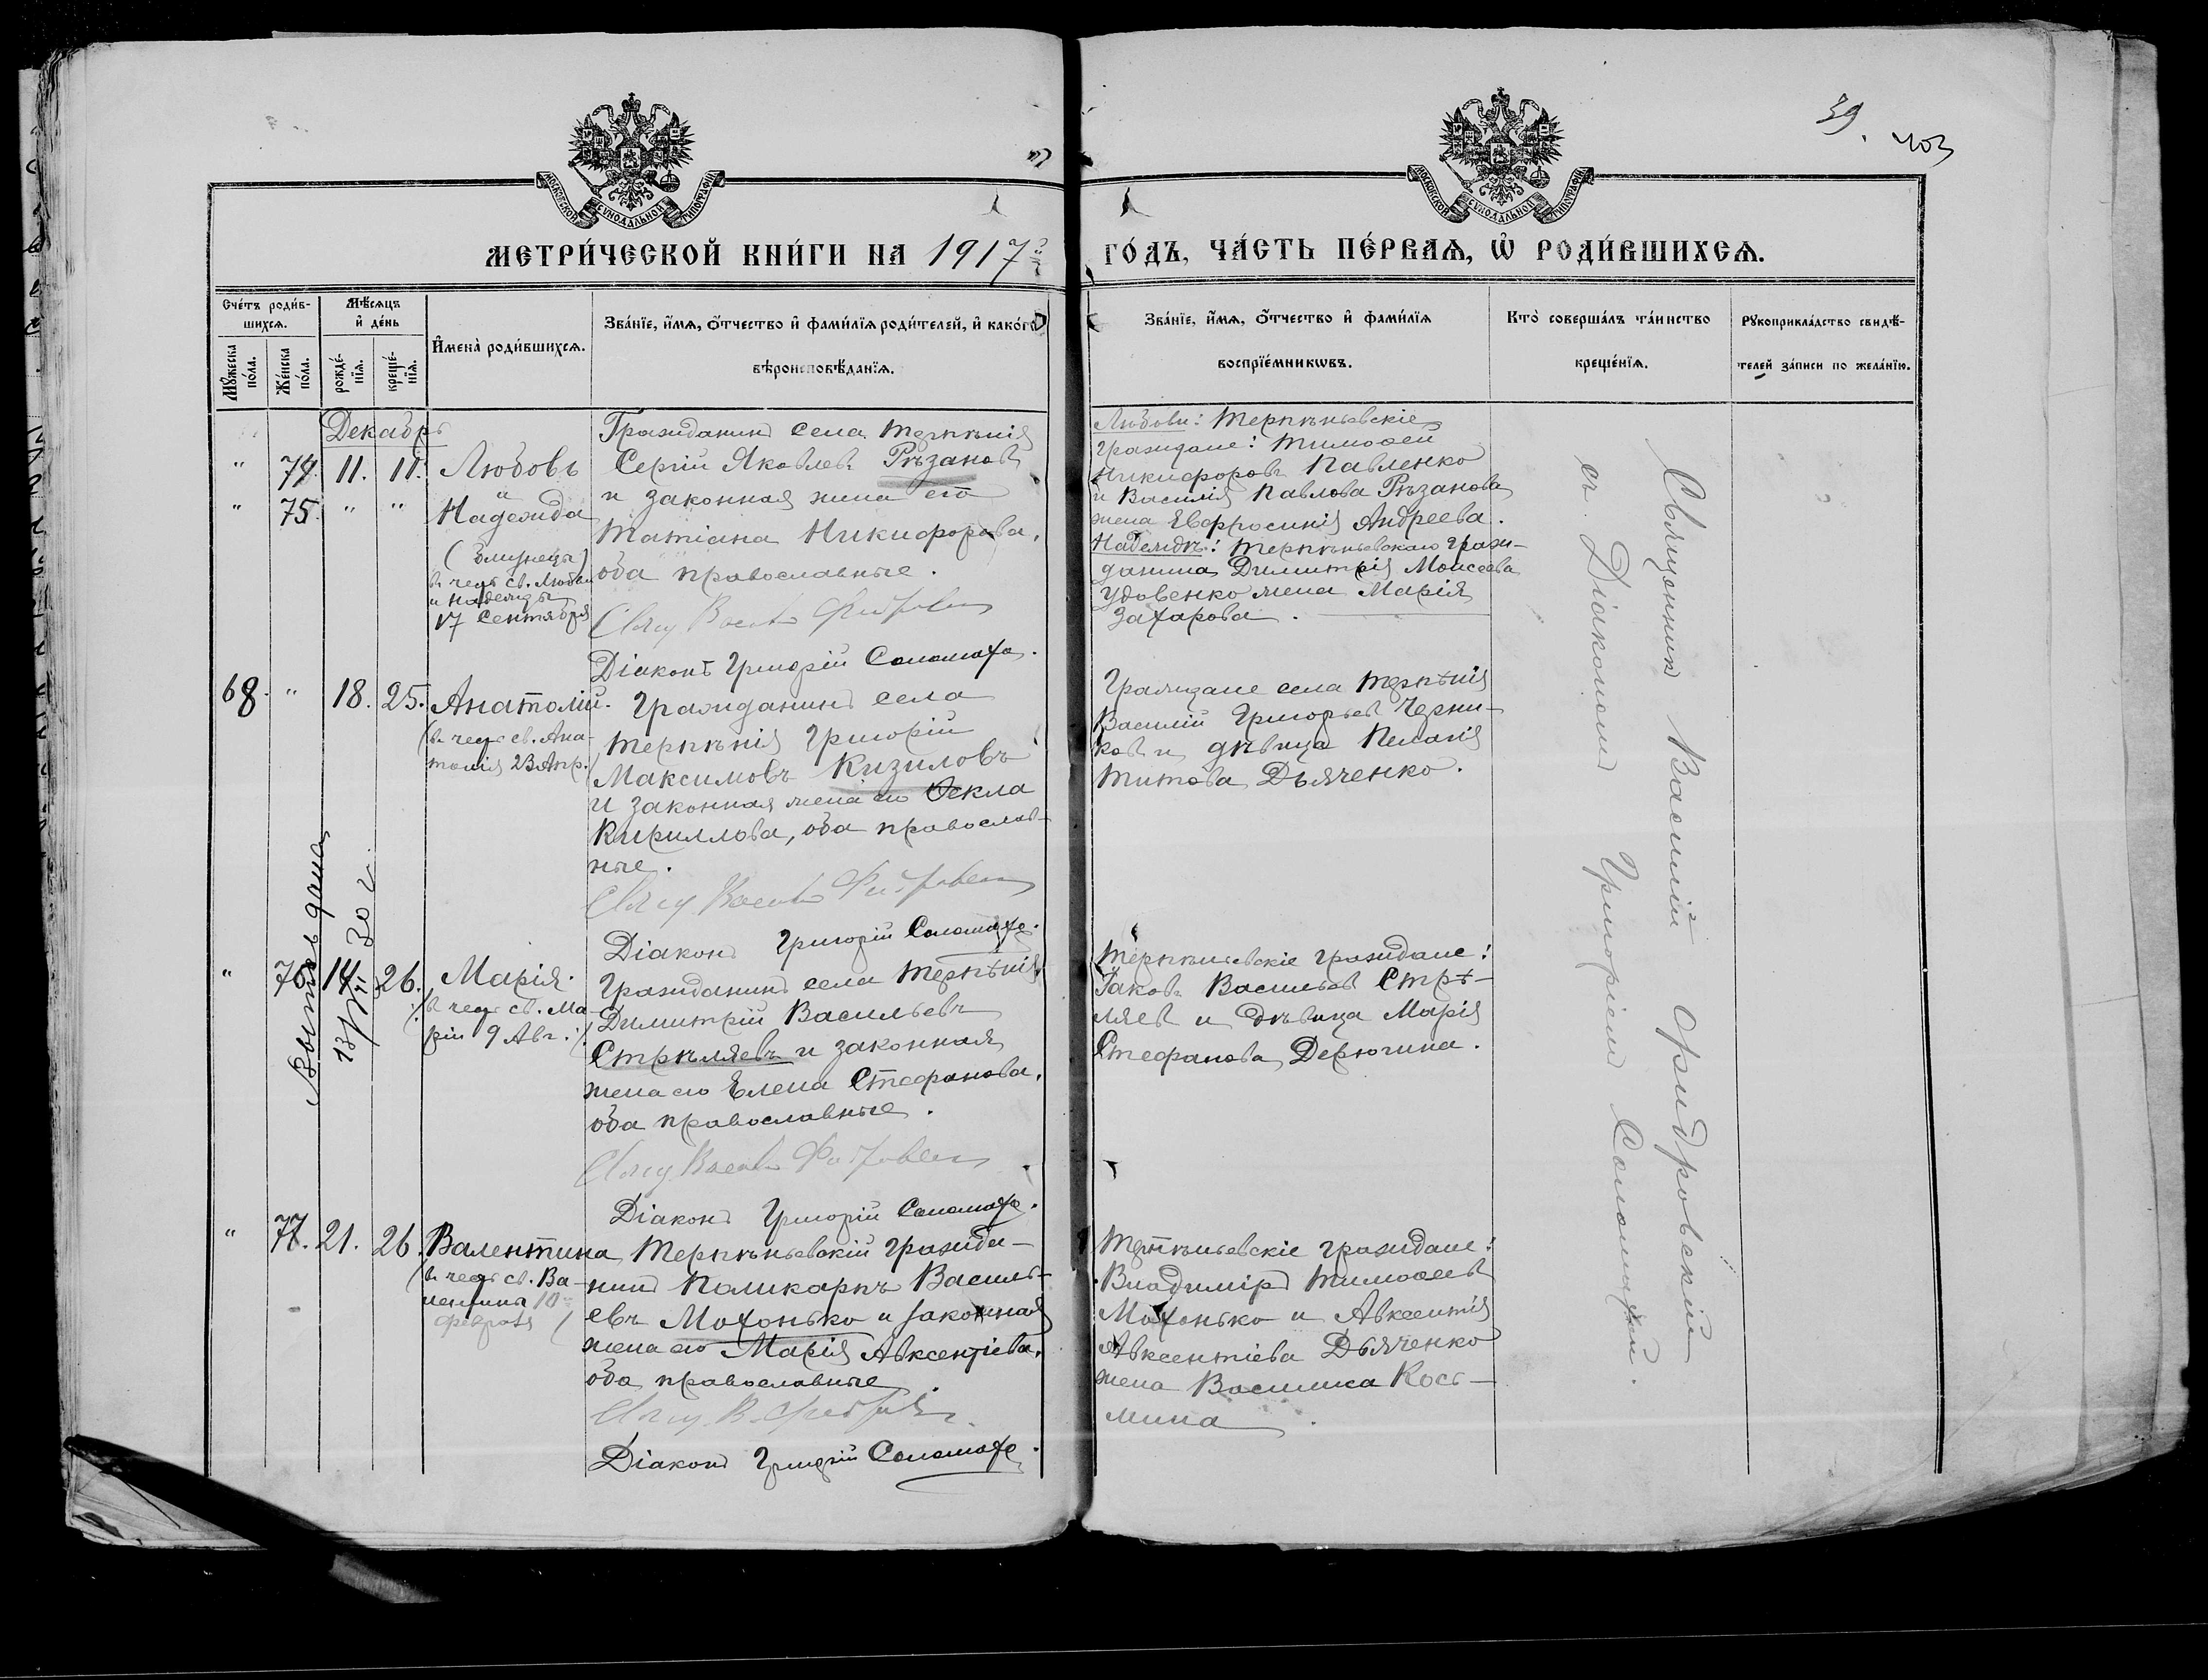 39.
403
МОСКОВСКОЙ СѴНОДАЛЬНОЙ ТИПОГРАФІИ
МОСКОВСКОЙ СѴНОДАЛЬНОЙ ТИПОГРАФІИ
МЕТРИ́ЧЕСКОЙ КНИ́ГИ НА 1917й
ГО́ДЪ, ЧА́СТЬ ПЕ́РВАѦ, Ѡ҆ РОДИ́ВШИХСѦ.
Сче́тъ роди́в-
шихсѧ.
Мꙋ́жеска по́ла.
Же́нска по́ла.
Мѣ́сѧцъ
и҆ де́нь
рожде́-
нїѧ.
креще́-
нїѧ.
И҆мена̀ роди́вшихсѧ.
Зва́нїе, и҆́мѧ, ѻ҆́тчество и҆ фами́лїѧ роди́телей, и҆ како́гѡ
вѣроисповѣ́данїѧ.
Зва́нїе, и҆́мѧ, ѻ҆́тчество и҆ фами́лїѧ
воспрїе́мникѡвъ.
Кто̀ соверша́лъ та́инство
креще́нїѧ.
Рꙋкоприкла́дство свидѣ́-
телей за́писи по жела́нїю.
Декабрь
" 74. 11. 11. Любовь
" 75. " " Надежда
(близнецы)
въ честь св. Любви
и Надежды
17 Сентября
Гражданинъ села Терпѣнія
Сергій Яковлевъ Рѣзановъ
и законная жена его
Татіана Никифорова,
оба православные.
Свящ. Васил
Діаконъ Григорій Соломаха.
Любови: Терпѣньевскіе
граждане: Тимоѳей
Никифоровъ Павленко
и Василія Павлова Рѣзанова
жена Евфросинія Андреева.
Надеждѣ: Терпѣньевскаго граж-
данина Димитрія Моисеева
Удовенко жена Марія
Захарова.
68. " 18. 25. Анатолій.
(въ честь св. Ана-
толія 23 Апр.)
Гражданинъ села
Терпѣнія Григорій
Максимовъ Кизиловъ
и законная жена его Ѳекла
Кириллова, оба православ-
ные.
Свящ. Васил
Діаконъ Григорій Соломаха.
Граждане села Терпѣнія
Василій Григорьевъ Черни-
ковъ и дѣвица Пелагія
Титова Дьяченко.
Выпись дана
13/VII 30 г.
" 76. 14. 26. Марія.
(въ честь св. Ма-
ріи 9 Авг.)
Гражданинъ села Терпѣнія
Димитрій Васильевъ
Стрѣляевъ и законная
жена его Елена Стефанова,
оба православные.
Свящ. Васил
Діаконъ Григорій Соломаха.
Терпѣньевскіе граждане:
Іаковъ Васильевъ Стрѣ-
ляевъ и дѣвица Марія
Стефанова Дерюгина.
" 77. 21. 26. Валентина
(въ честь св. Ва-
лентина 10
февраля)
Терпѣньевскій гражда-
нинъ Поликарпъ Василь-
евъ Мохонько и законная
жена его Марія Авксентіева,
оба православные.
Свящ. В.
Діаконъ Григорій Соломаха.
Терпѣньевскіе граждане:
Владиміръ Тимоѳеевъ
Мохонько и Авксентія
Авксентіева Дьяченко
жена Василиса Кось-
мина.
Священникъ Василій Фридровскій
съ Діакономъ Григоріемъ Соломахой.